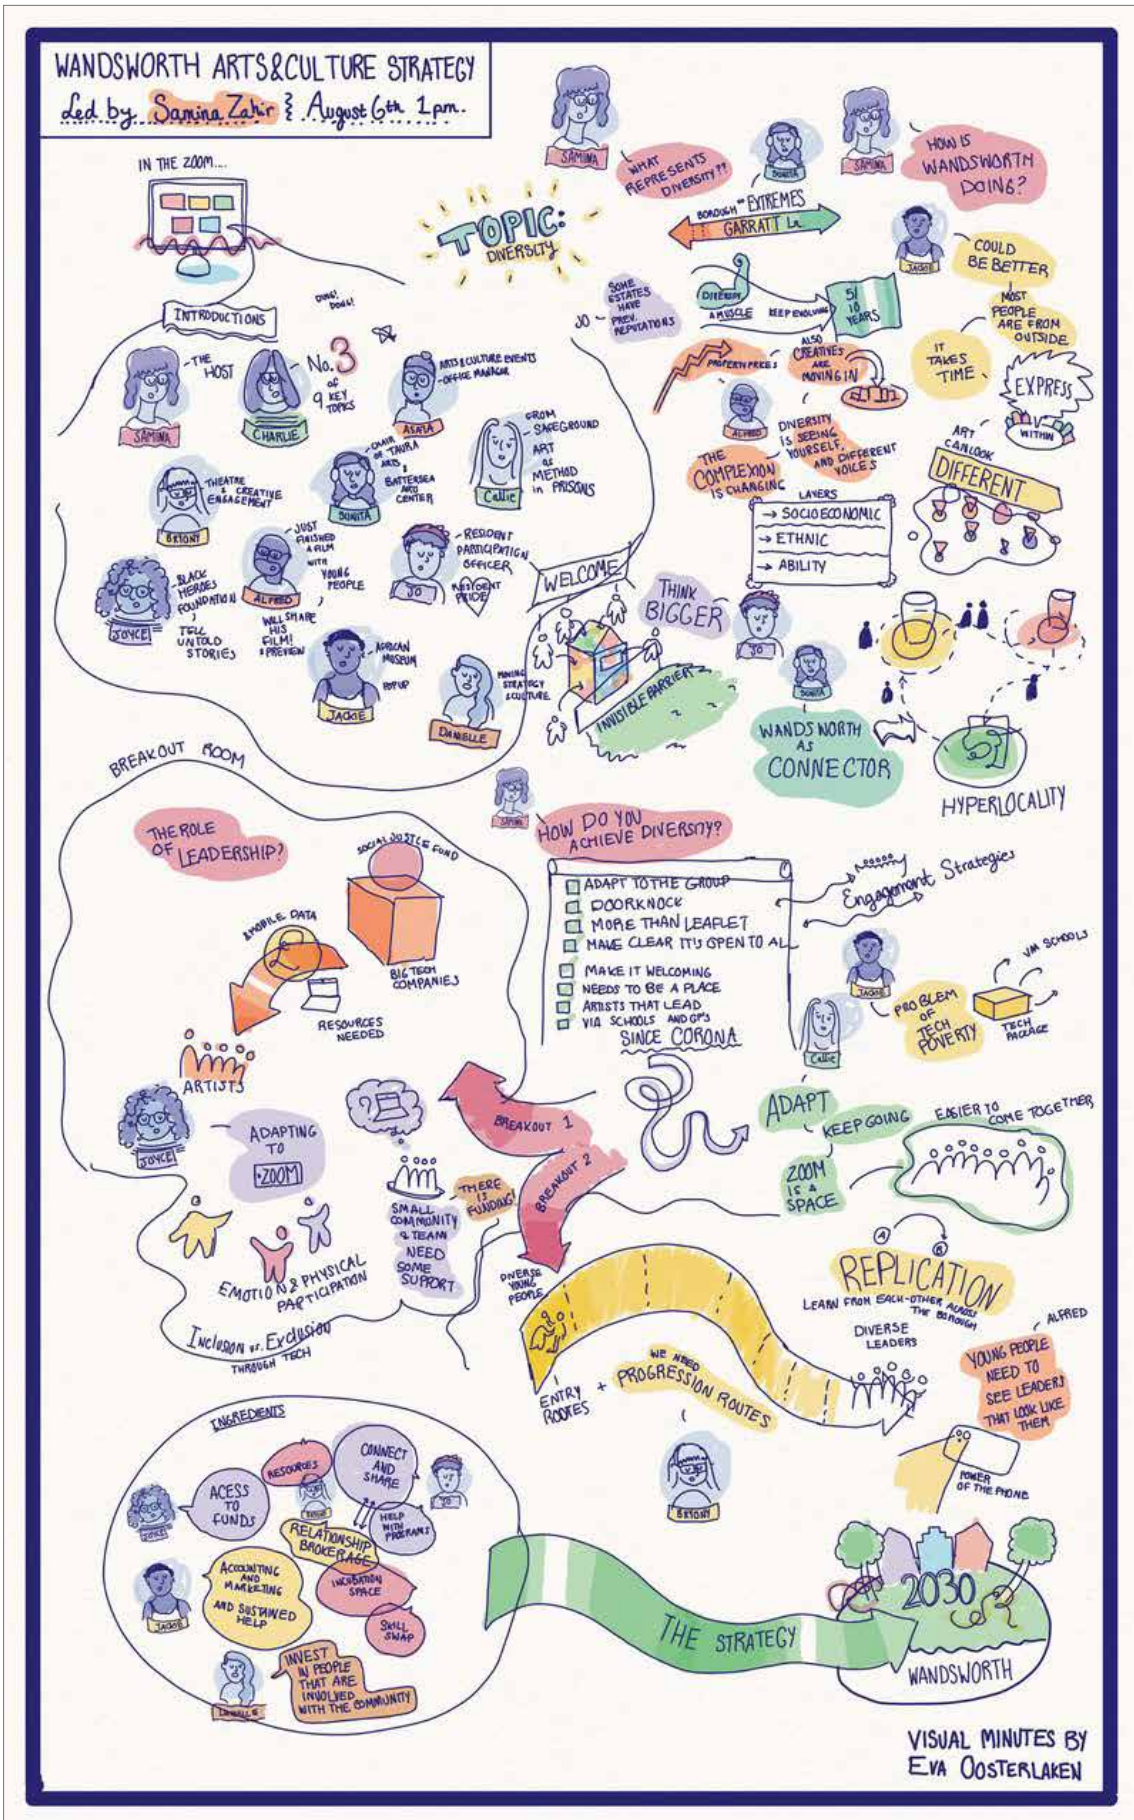 WANDSWORTH ARTS&CULTURE STRATEGY
Led by Samina Zahir & August 6th 1pm.
IN THE ZOOM....
INTRODUCTIONS
DING!
DONG!
SAMINA
-THE
HOST
CHARLIE
No. 3
of
9 KEY
TOPICS
ASATA
ARTS & CULTURE EVENTS
-OFFICE MANAGER
BRIONY
THEATRE
& CREATIVE
ENGAGEMENT
SONITA
CHAIR
OF TAURA
ARTS
&
BATTERSEA
ARTS
CENTER
Callie
FROM
SAFEGROUND
ART
as
METHOD
in PRISONS
JOYCE
-BLACK
HEROES
FOUNDATION
TELL
UNTOLD
STORIES
ALFRED
-JUST
FINISHED
A FILM
WITH
YOUNG
PEOPLE
WILL SHARE
HIS
FILM!
& PREVIEW
JO
-RESIDENT
PARTICIPATION
OFFICER
RESIDENT
PRIDE
JACKIE
-AFRICAN
MUSEUM
POP UP
DANIELLE
STRATEGY
& CULTURE
WELCOME
TOPIC:
DIVERSITY
SAMINA
WHAT
REPRESENTS
DIVERSITY??
SONITA
BOROUGH OF EXTREMES
GARRATT La
SAMINA
HOW IS
WANDSWORTH
DOING?
JACKIE
COULD
BE BETTER
MOST
PEOPLE
ARE FROM
OUTSIDE
IT
TAKES
TIME
JO -
SOME
ESTATES
HAVE
PREV.
REPUTATIONS
DIVERSITY
A MUSCLE
KEEP EVOLVING
5/
10
YEARS
PROPERTY PRICES
ALSO
CREATIVES
ARE
MOVING IN
ALFRED
DIVERSITY
IS SEEING
YOURSELF,
AND DIFFERENT
VOICES
THE
COMPLEXION
IS CHANGING
EXPRESS
WITHIN
ART
CAN LOOK
DIFFERENT
LAYERS
→ SOCIOECONOMIC
→ ETHNIC
→ ABILITY
THINK
BIGGER
JO
INVISIBLE BARRIER
SONITA
WANDSWORTH
AS
CONNECTOR
HYPERLOCALITY
BREAKOUT ROOM
THE ROLE
OF LEADERSHIP?
SOCIAL JUSTICE FUND
BIG TECH
COMPANIES
& MOBILE DATA
£
RESOURCES
NEEDED
ARTISTS
JOYCE
ADAPTING
TO
ZOOM
?
EMOTION & PHYSICAL
PARTICIPATION
SMALL
COMMUNITY
& TEAM
NEED
SOME
SUPPORT
THERE
IS
FUNDING!
Inclusion vs. Exclusion
THROUGH TECH
SAMINA
HOW DO YOU
ACHIEVE DIVERSITY?
ADAPT TO THE GROUP
DOORKNOCK
MORE THAN LEAFLET
MAKE CLEAR IT'S OPEN TO ALL
MAKE IT WELCOMING
NEEDS TO BE A PLACE
ARTISTS THAT LEAD
VIA SCHOOLS AND GP'S
Engagement Strategies
SINCE CORONA
JACKIE
PROBLEM
OF
TECH
POVERTY
VIA SCHOOLS
TECH
PACKAGE
Callie
ADAPT
KEEP GOING
ZOOM
IS A
SPACE
EASIER TO
COME TOGETHER
BREAKOUT 1
BREAKOUT 2
DIVERSE
YOUNG
PEOPLE
ENTRY
ROUTES
+
WE NEED
PROGRESSION ROUTES
BRIONY
A
B
REPLICATION
LEARN FROM EACH-OTHER ACROSS
THE BOROUGH
DIVERSE
LEADERS
ALFRED
YOUNG PEOPLE
NEED TO
SEE LEADERS
THAT LOOK LIKE
THEM
POWER
OF THE PHONE
INGREDIENTS
JOYCE
ACESS
TO
FUNDS
RESOURCES
BRIONY
CONNECT
AND
SHARE
JO
HELP
WITH
PROGRAMS
RELATIONSHIP
BROKERAGE
JACKIE
ACCOUNTING
AND
MARKETING
AND SUSTAINED
HELP
INCUBATION
SPACE
SKILL
SWAP
INVEST
IN PEOPLE
THAT ARE
INVOLVED
WITH THE COMMUNITY
THE STRATEGY
2030
WANDSWORTH
VISUAL MINUTES BY
EVA OOSTERLAKEN